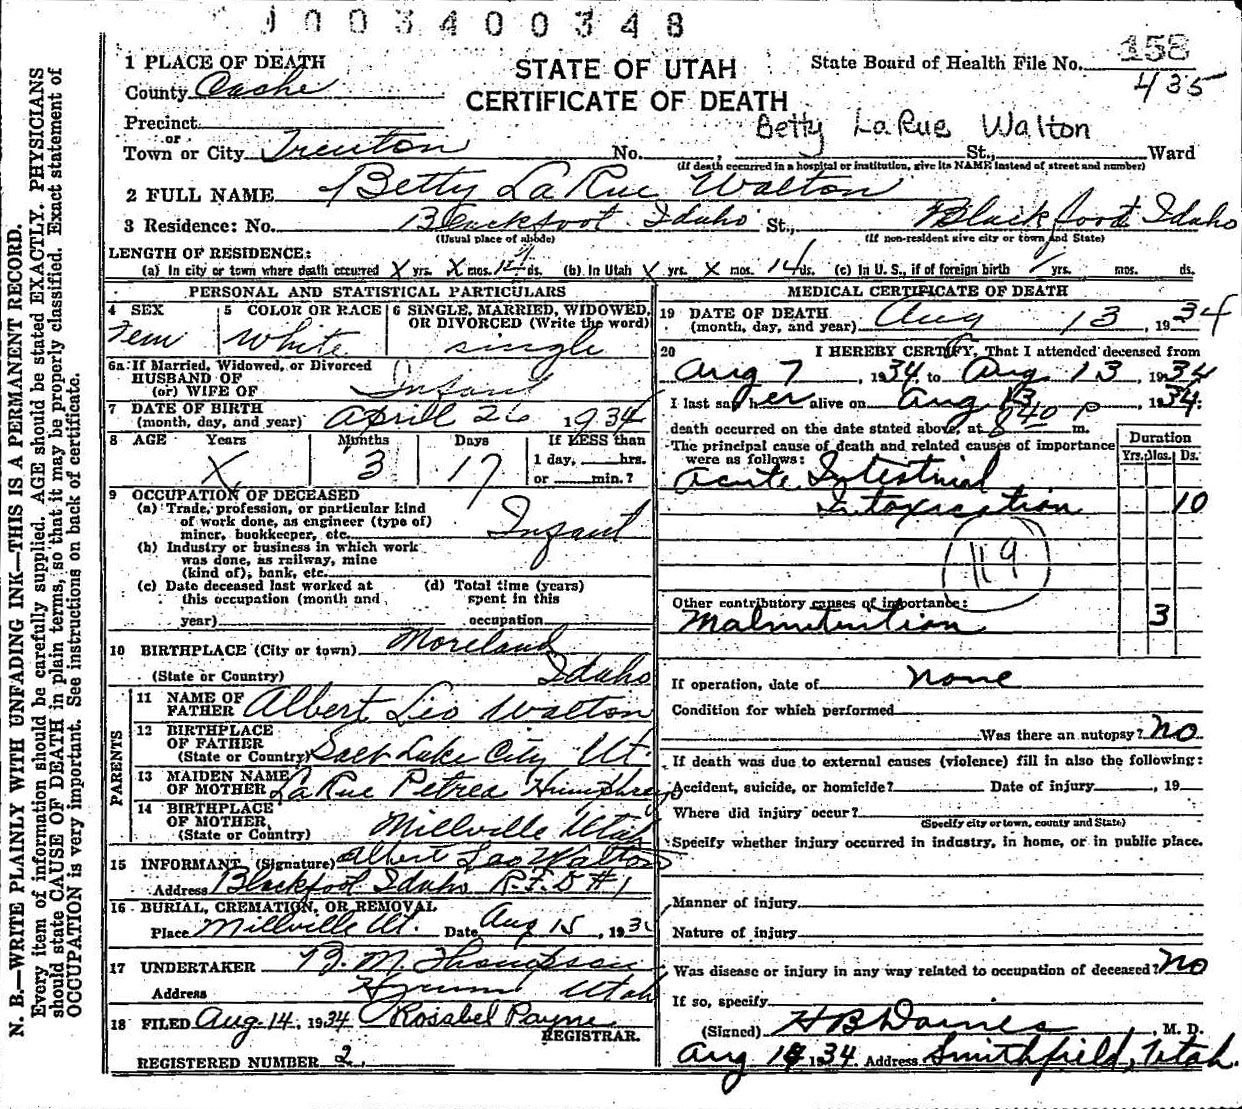 1003400348
1 PLACE OF DEATH
STATE OF UTAH
State Board of Health File No. 158
435
County Cache
CERTIFICATE OF DEATH
Precinct
or
Betty LaRue Walton
Town or City Trenton No. , St., Ward
(If death occurred in a hospital or institution, give its NAME instead of street and number)
2 FULL NAME Betty LaRue Walton
3 Residence: No. Blackfoot Idaho St., Blackfoot Idaho
(Usual place of abode) (If non-resident give city or town and State)
LENGTH OF RESIDENCE:
(a) In city or town where death occurred X yrs. X mos. 14 ds. (b) In Utah X yrs. X mos. 14 ds. (c) In U. S., if of foreign birth yrs. mos. ds.
PERSONAL AND STATISTICAL PARTICULARS
4 SEX
Fem
5 COLOR OR RACE
White
6 SINGLE, MARRIED, WIDOWED, OR DIVORCED (Write the word)
single
6a If Married, Widowed, or Divorced
HUSBAND OF
(or) WIFE OF Infant
7 DATE OF BIRTH
(month, day, and year) April 26 1934
8 AGE Years Months Days If LESS than
X 3 17 1 day, hrs.
or min.?
9 OCCUPATION OF DECEASED
(a) Trade, profession, or particular kind
of work done, as engineer (type of)
miner, bookkeeper, etc. Infant
(b) Industry or business in which work
was done, as railway, mine
(kind of), bank, etc.
(c) Date deceased last worked at
this occupation (month and
year)
(d) Total time (years)
spent in this
occupation
10 BIRTHPLACE (City or town) Moreland
(State or Country) Idaho
PARENTS
11 NAME OF
FATHER Albert Leo Walton
12 BIRTHPLACE
OF FATHER
(State or Country) Salt Lake City Ut.
13 MAIDEN NAME
OF MOTHER LaRue Petrea Humphreys
14 BIRTHPLACE
OF MOTHER
(State or Country) Millville Utah
15 INFORMANT (Signature) Albert Leo Walton
Address Blackfoot Idaho R.F.D #1
16 BURIAL, CREMATION, OR REMOVAL
Place Millville Ut. Date Aug 15, 193
17 UNDERTAKER B. M. Thompson
Address Hyrum Utah
18 FILED Aug. 14, 1934 Rosabel Payne
REGISTRAR.
REGISTERED NUMBER 2
MEDICAL CERTIFICATE OF DEATH
19 DATE OF DEATH
(month, day, and year) Aug 13, 1934
20 I HEREBY CERTIFY, That I attended deceased from
Aug 7, 1934 to Aug. 13, 1934
I last saw her alive on Aug 13, 1934;
death occurred on the date stated above, at 8 40 P m.
The principal cause of death and related causes of importance
were as follows:
Duration
Yrs. Mos. Ds.
Acute Intestinial
Intoxication 10
119
Other contributory causes of importance:
Malnutrition 3
If operation, date of none
Condition for which performed
Was there an autopsy? No
If death was due to external causes (violence) fill in also the following:
Accident, suicide, or homicide? Date of injury , 19
Where did injury occur?
(Specify city or town, county and State)
Specify whether injury occurred in industry, in home, or in public place.
Manner of injury
Nature of injury
Was disease or injury in any way related to occupation of deceased? No
If so, specify
(Signed) H B Daines, M. D.
Aug 1934. Address Smithfield, Utah.
N. B.—WRITE PLAINLY WITH UNFADING INK—THIS IS A PERMANENT RECORD.
Every item of information should be carefully supplied. AGE should be stated EXACTLY. PHYSICIANS
should state CAUSE OF DEATH in plain terms, so that it may be properly classified. Exact statement of
OCCUPATION is very important. See instructions on back of certificate.